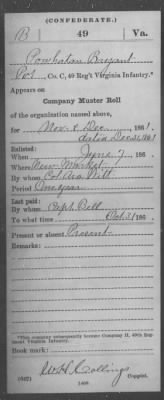 (CONFEDERATE.)
B 49 Va.
Powhatan Bryant
Pvt, Co. C, 49 Reg't Virginia Infantry.*
Appears on
Company Muster Roll
of the organization named above,
for Nov. & Dec., 1861.
dated Dec 31, 1861
Enlisted:
When June 7, 186 .
Where New Market
By whom Col Ira Witt
Period One year
Last paid:
By whom Capt. Bell
To what time Oct. 31, 186 .
Present or absent Present
Remarks:
*This company subsequently became Company H, 49th Regiment Virginia Infantry.
Book mark:
(642) Copyist.